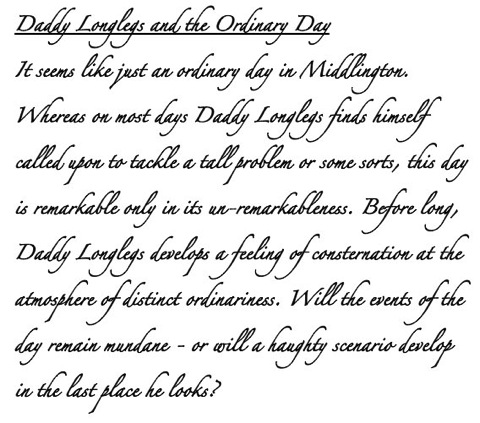 Daddy Longlegs and the Ordinary Day
It seems like just an ordinary day in Middlington.
Whereas on most days Daddy Longlegs finds himself
called upon to tackle a tall problem or some sorts, this day
is remarkable only in its un-remarkableness. Before long,
Daddy Longlegs develops a feeling of consternation at the
atmosphere of distinct ordinariness. Will the events of the
day remain mundane - or will a haughty scenario develop
in the last place he looks?